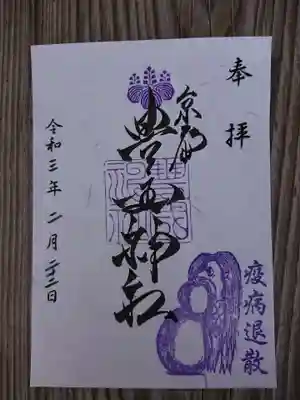 奉拝
豊国神社
令和三年二月二十二日
疫病退散